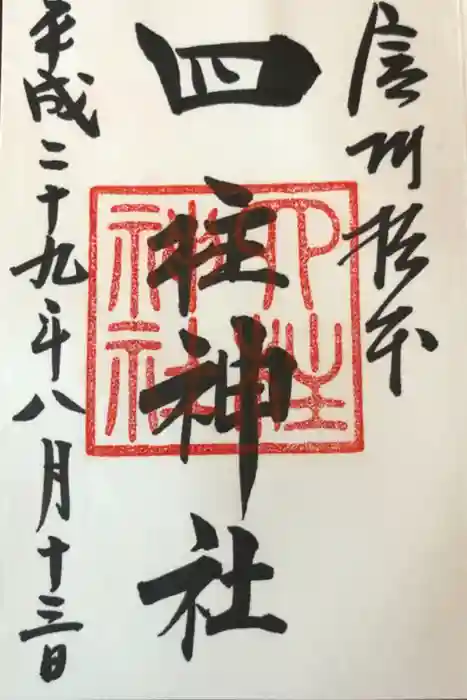 信州松本
四柱神社
平成二十九年八月十三日
四柱
神社